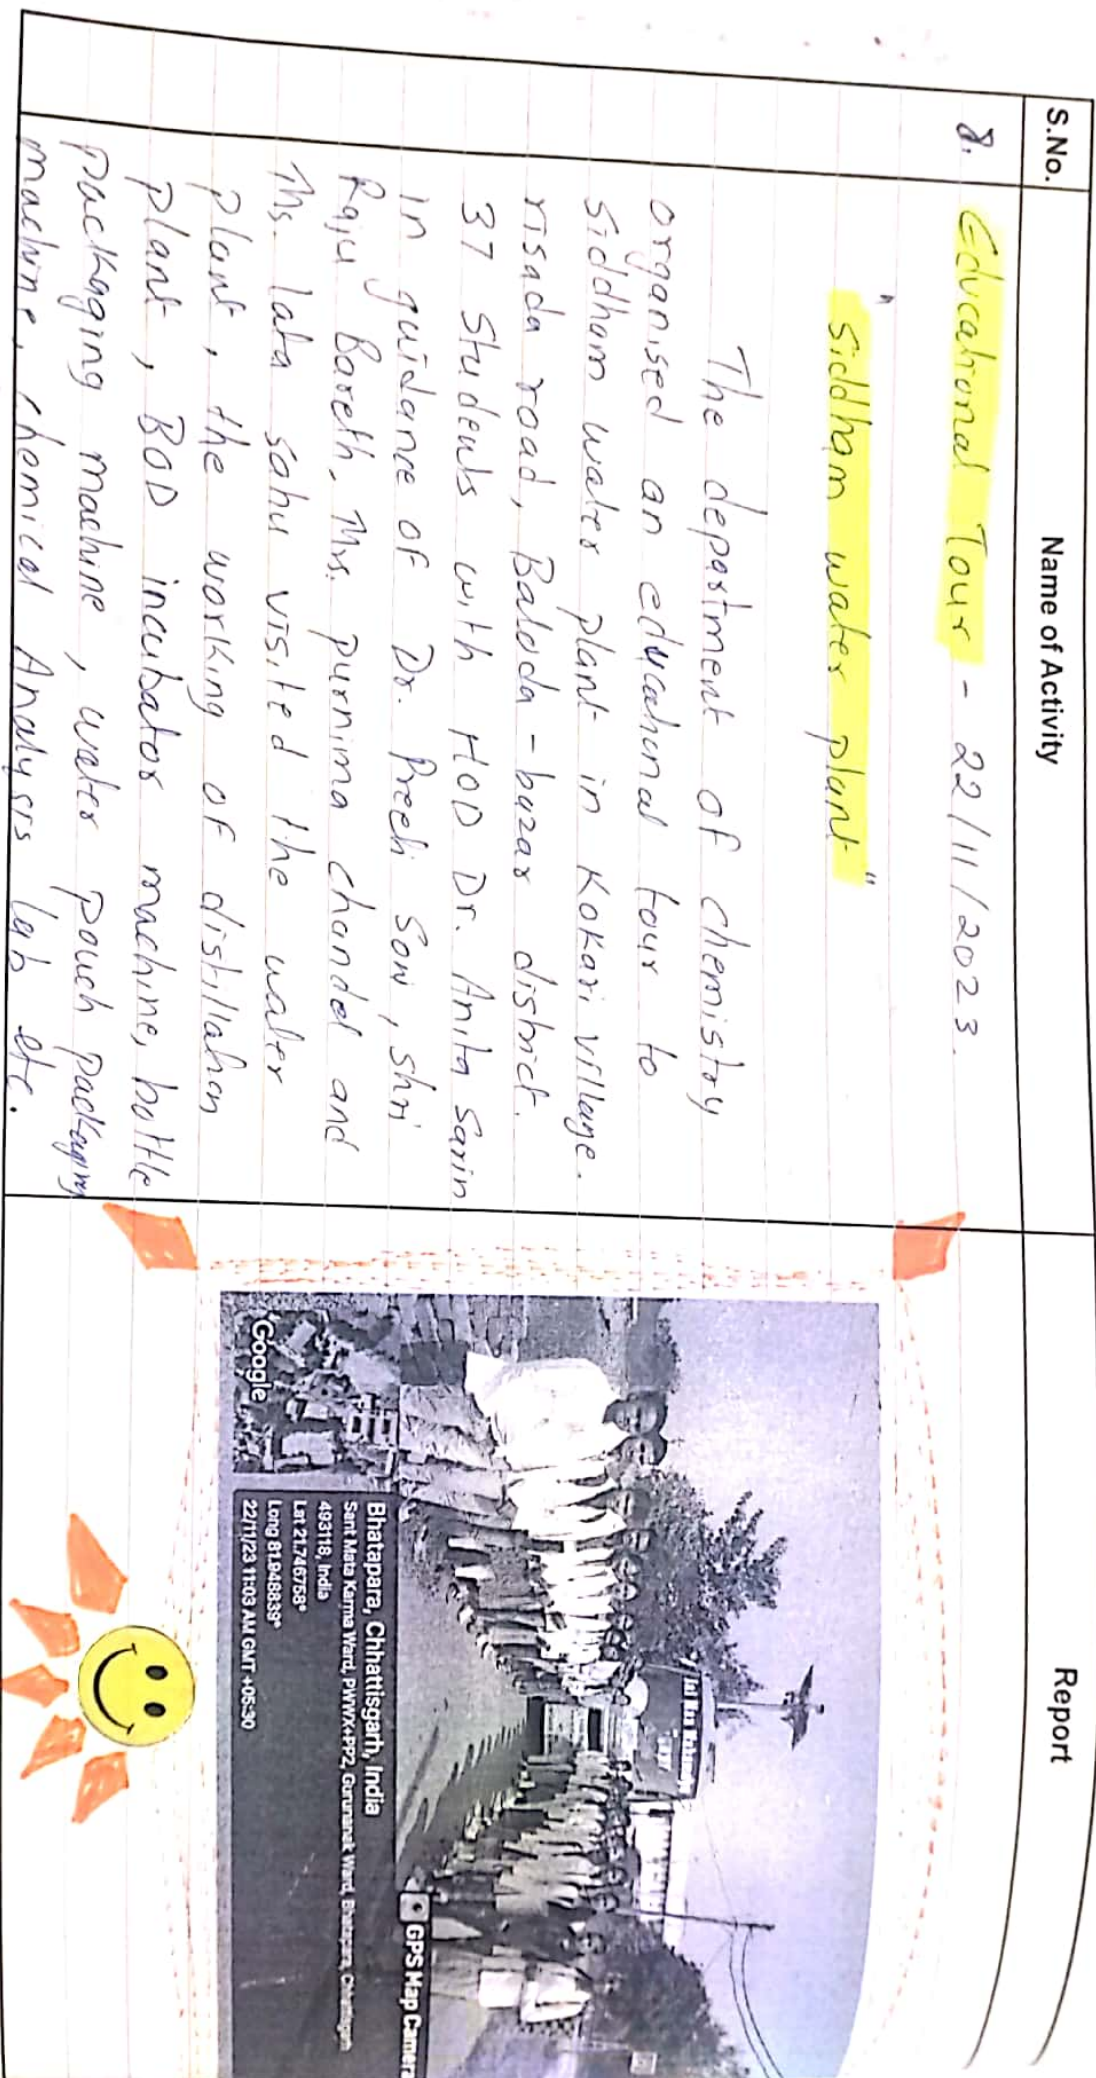 S.No.
Name of Activity
Report
8.
Educational Tour - 22/11/2023.
"Siddham water plant"
The department of chemistry
organised an educational tour to
Siddham water plant in Kokari village.
risada road, Baloda - bazar district.
37 Students with HOD Dr. Anita Sarin
in guidance of Dr. Preeti Soni, shri
Raju Bareth, Mrs. purnima chandel and
Ms. lata sahu visited the water
plant, the working of distillation
plant, BOD incubator machine, bottle
packaging machine, water pouch packaging
machine, chemical Analysis lab etc.
GPS Map Camera
Bhatapara, Chhattisgarh, India
Sant Mata Karma Ward, PWWX+PP2, Gurunanak Ward, Bhatapara, Chhattisgarh
493118, India
Lat 21.746758°
Long 81.948839°
22/11/23 11:03 AM GMT +05:30
Google